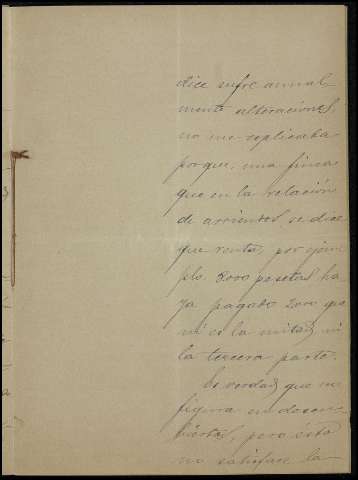 dice sufre anual-
mente alteraciones,
no me esplicaba
porque, una finca
que en la relación
de arriendos se dice
que renta, por ejem-
plo 8000 pesetas ha-
ya pagado 2000 que
ni es la mitad ni
la tercera parte.
Es verdad que se
figura en descu-
biertos, pero ésto
no satisface la